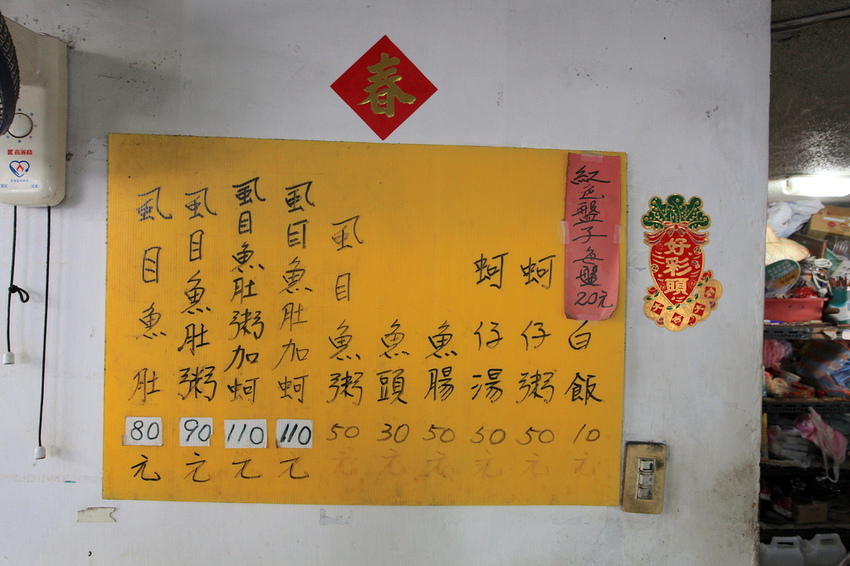 春
紅色盤子每盤20元
白飯10元
蚵仔粥50元
蚵仔湯50元
魚腸50元
魚頭30元
虱目魚粥50元
虱目魚肚加蚵110元
虱目魚肚粥加蚵110元
虱目魚肚粥90元
虱目魚肚80元
好彩頭